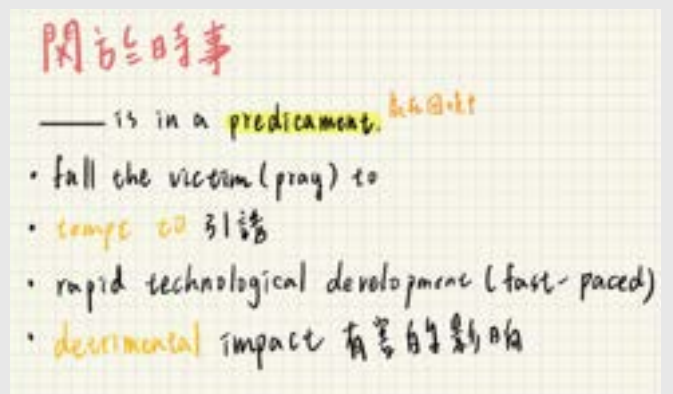 關於時事
____ is in a predicament. 處在困境中
• fall the victim (pray) to
• tempt to 引誘
• rapid technological development (fast-paced)
• detrimental impact 有害的影响